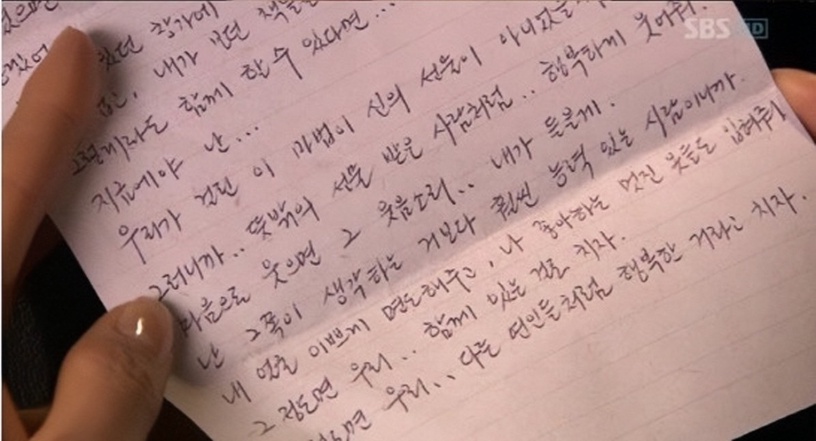 SBS HD
었으면
있던 창가에
내가 보던 책들을
그렇게라도 함께 할 수 있다면...
지금에야 난...
우리가 걸린 이 마법이 신의 선물이 아니었을
그러니까.. 뜻밖의 선물 받은 사람처럼.. 행복하게 웃어줘.
마음으로 웃으면 그 웃음소리.. 내가 들을게.
난 그쪽이 생각하는 거보다 훨씬 능력 있는 사람이니까.
내 얼굴 이쁘게 면도해주고, 나 좋아하는 멋진 옷들도 입혀줘
그 정도면 우리.. 함께 있는 걸로 치자.
정도면 우리... 다른 연인들처럼 행복한 거라고 치자.